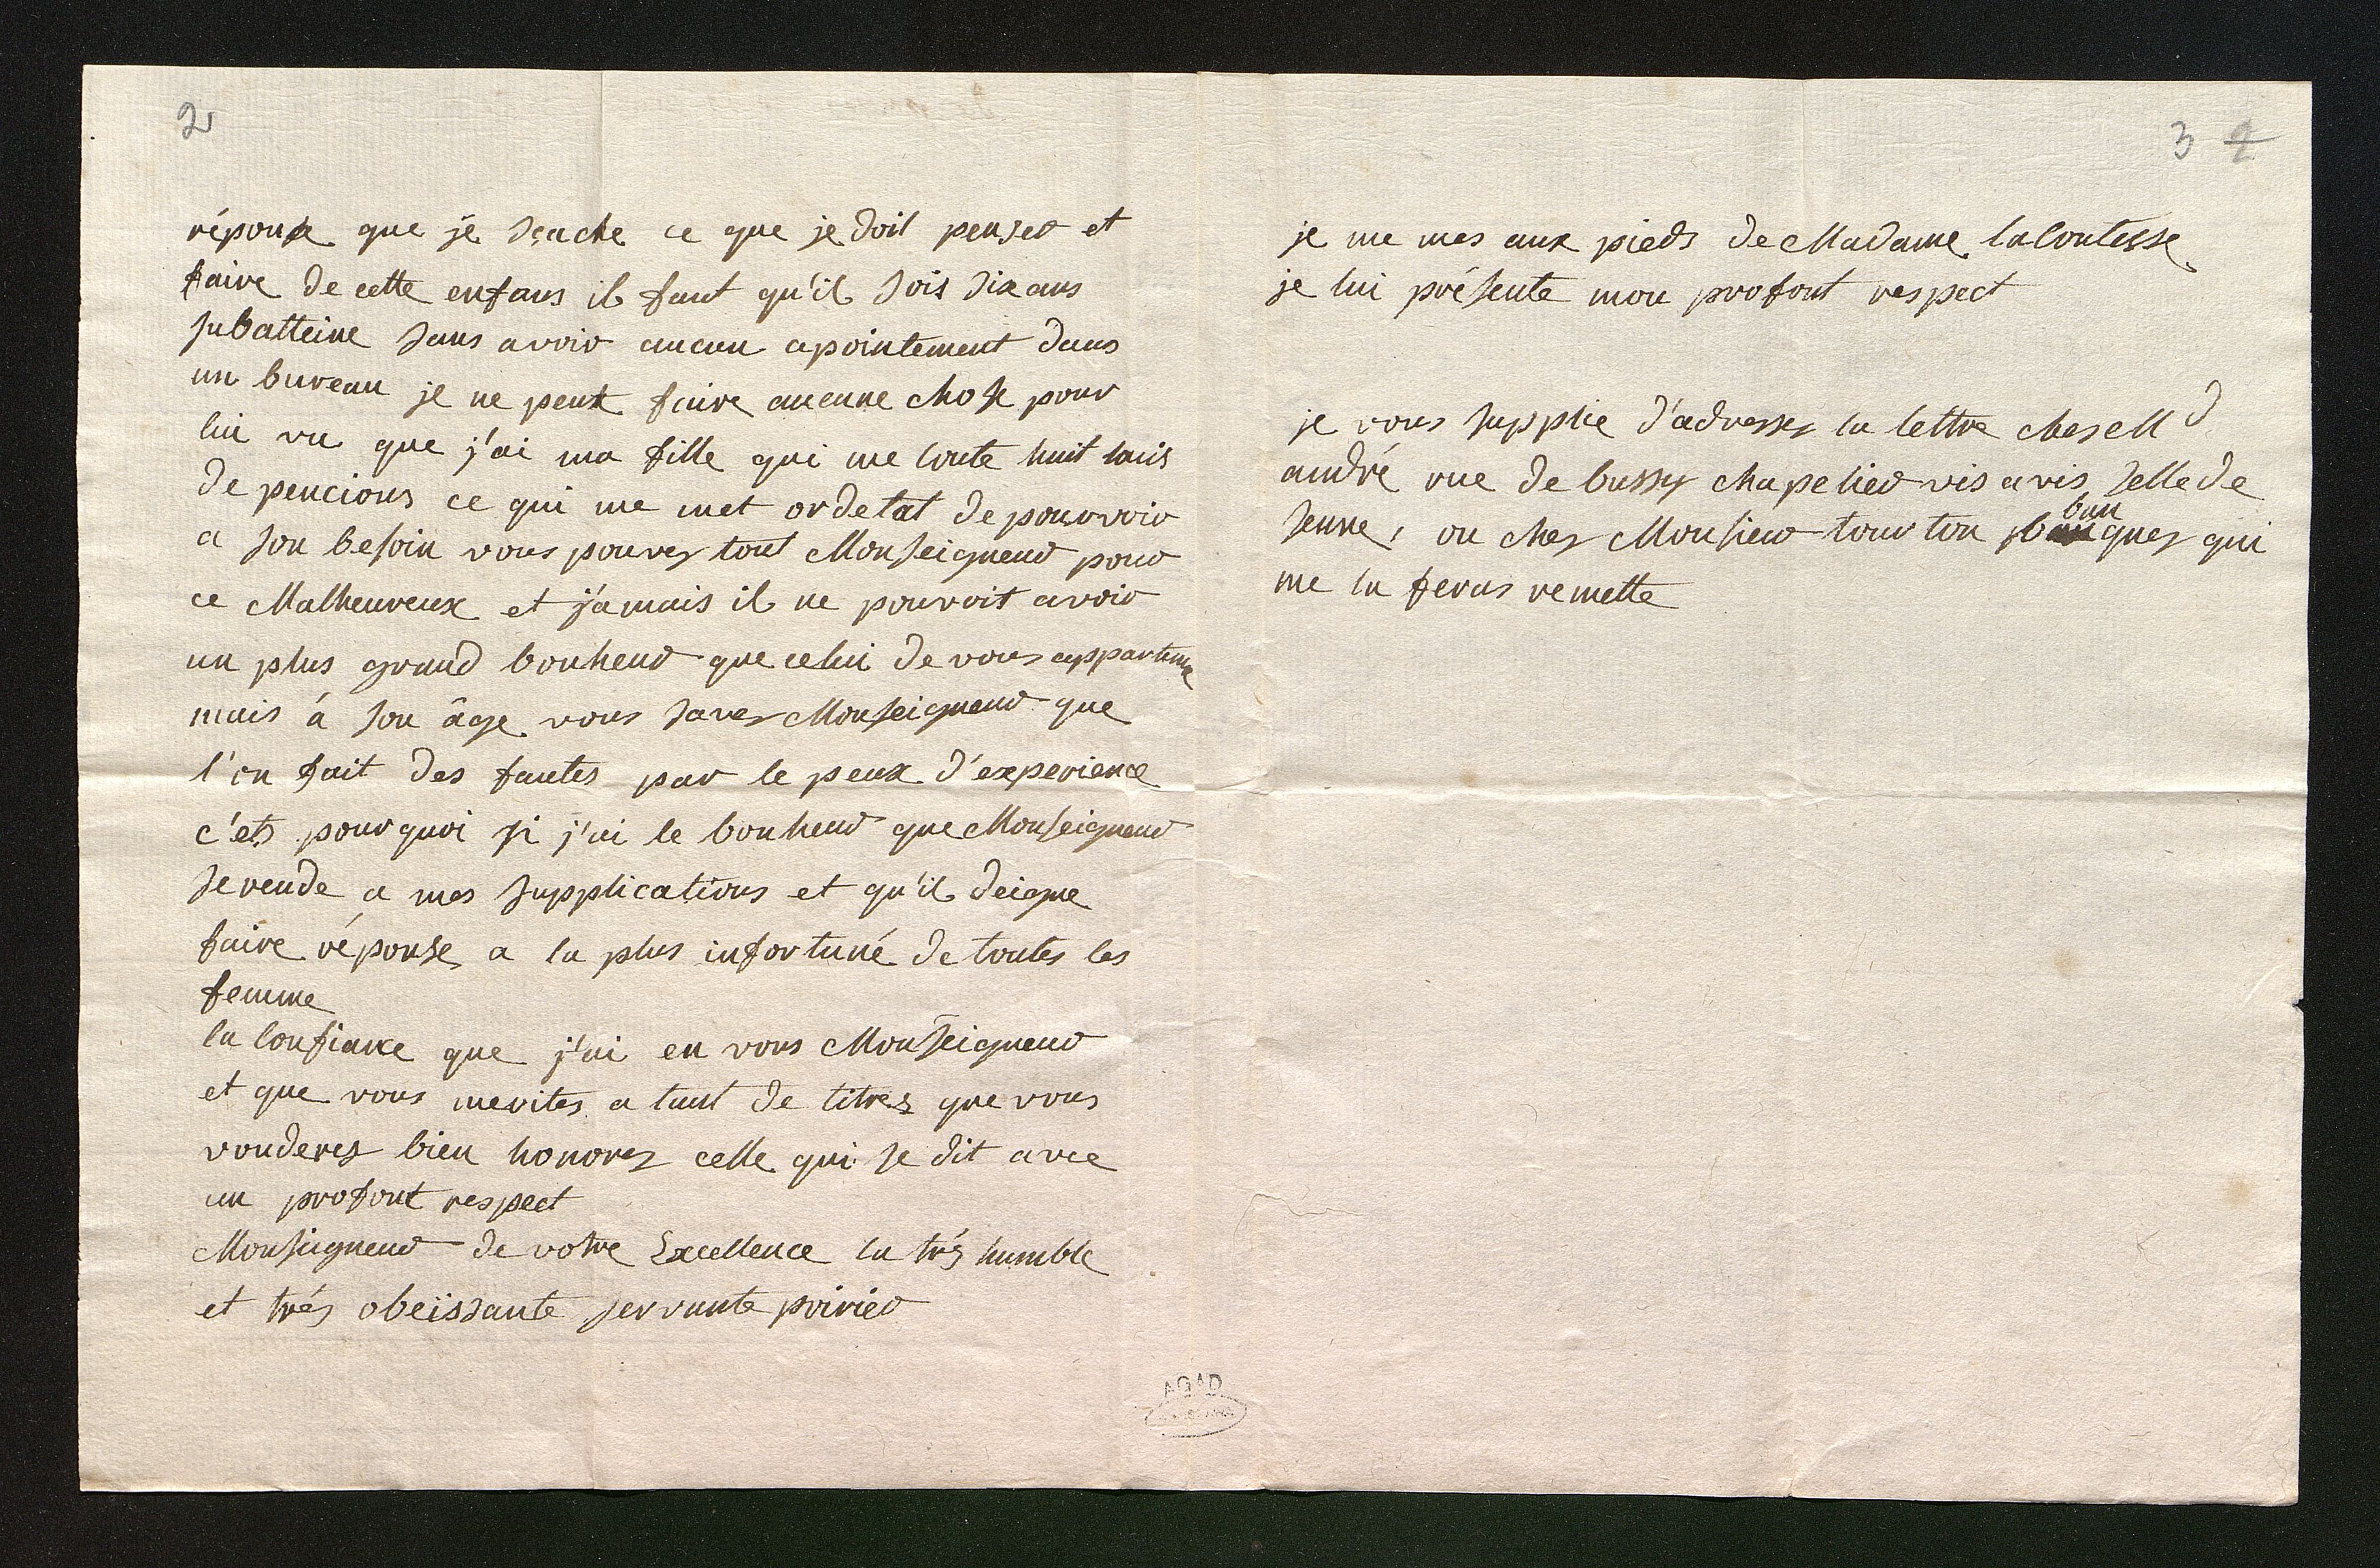 2
réponse que je sçache ce que je doil penser et
faire de cette enfans il faut qu'il sois dix ans
subatteine sans avoir aucun apointement dans
un bureau je ne peux faire aucune chose pour
lui vu que j'ai ma fille qui me coute huit louis
de pencions ce qui me met ordetat de pourvoir
a son besoin vous pouvez tout Monseigneur pour
ce Malheureux et j'amais il ne pouvoit avoir
un plus grand bonheur que celui de vous appartenir
mais à son âge vous savez Monseigneur que
l'on fait des fautes par le peux d'experience
c'ets pourquoi si j'ai le bonheur que Monseigneur
se rende a mes supplications et qu'il deigne
faire réponse a la plus infortuné de toutes les
femme
la confiance que j'ai en vous Monseigneur
et que vous merites a tant de titres que vous
vouderez bien honorez celle qui se dit avec
un profont respect
Monseigneur de votre Excellence la trés humble
et trés obeïssante servante poirier
AGAD
3 2
je me mes aux pieds de Madame la Contesse
je lui présente mon profont respect
je vous supplie d'adresser la lettre ches M d
andré rue de bussy chapelier vis avis selle de
senne, ou chez Monsieur tourton ban quez qui
me la feras remette